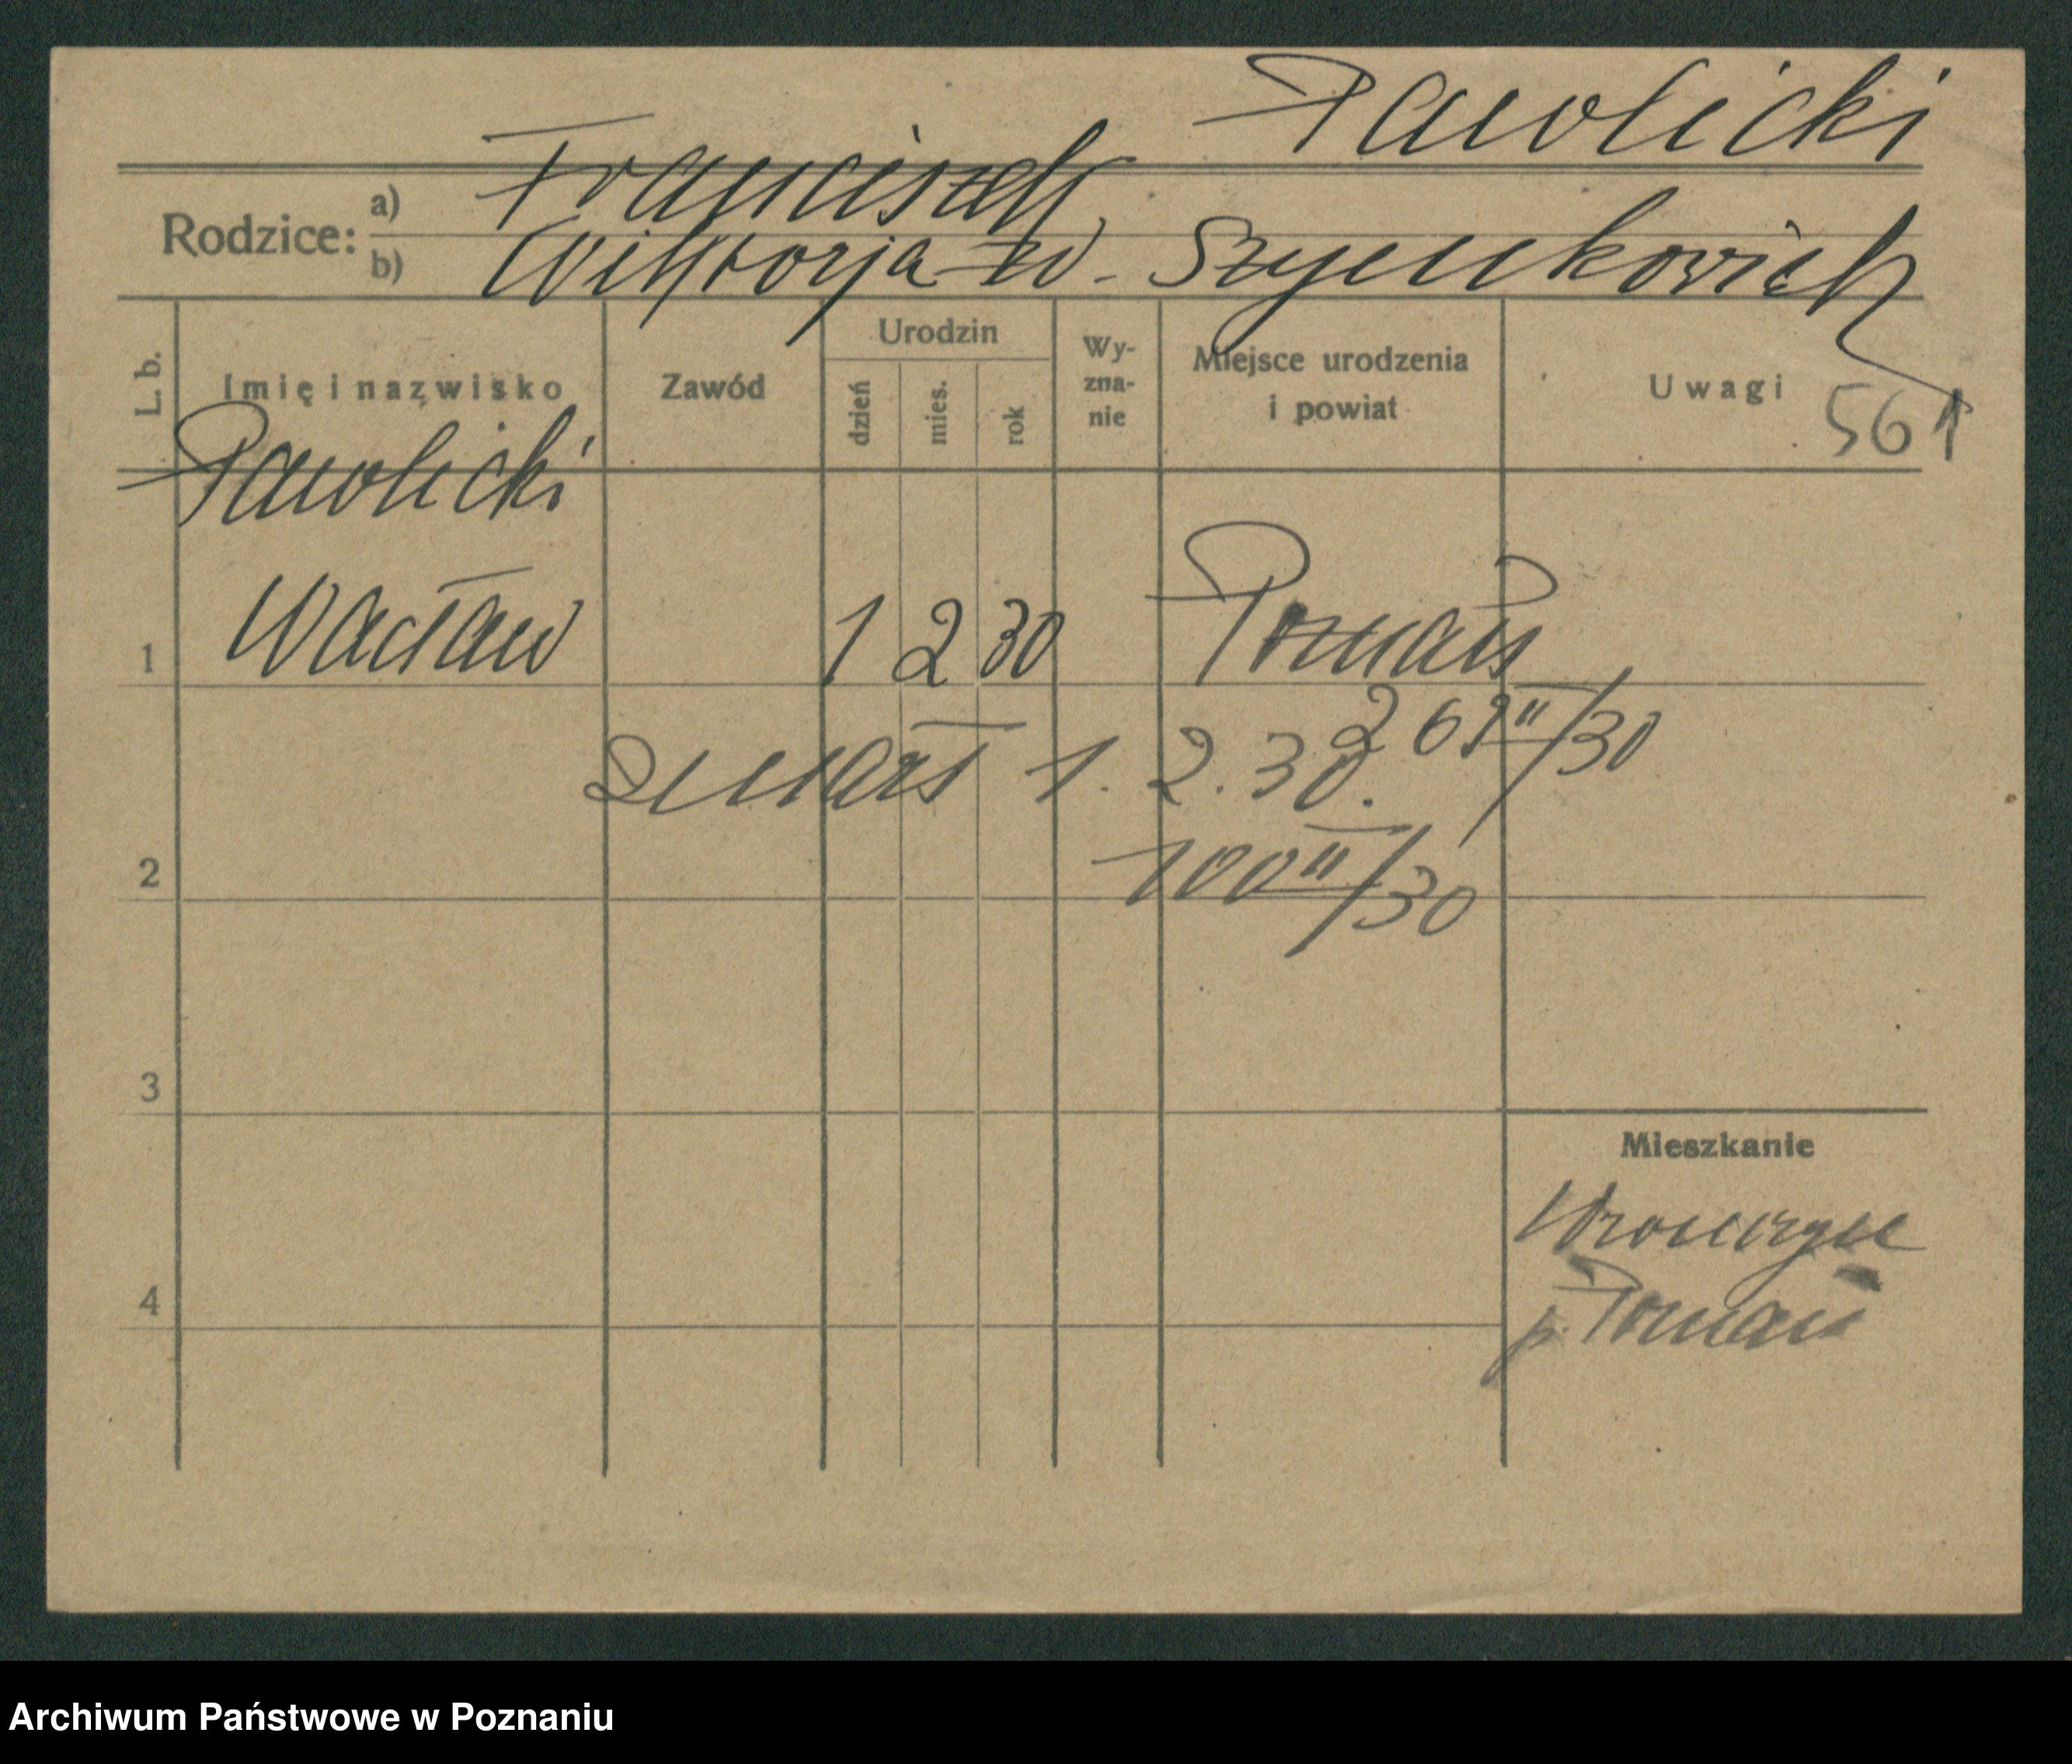 Pawlicki
Rodzice: a) Franciszek
b) Wiktorja z d. Szymkowiak
L. b. Imię i nazwisko Zawód Urodzin dzień mies. rok Wyznanie Miejsce urodzenia i powiat Uwagi
561
Pawlicki
1 Wacław 1 2 30 Poznań
269 II/30
zmarł 1. 2. 30.
2 100 II/30
3
Mieszkanie
p. Poznań
4
Archiwum Państwowe w Poznaniu